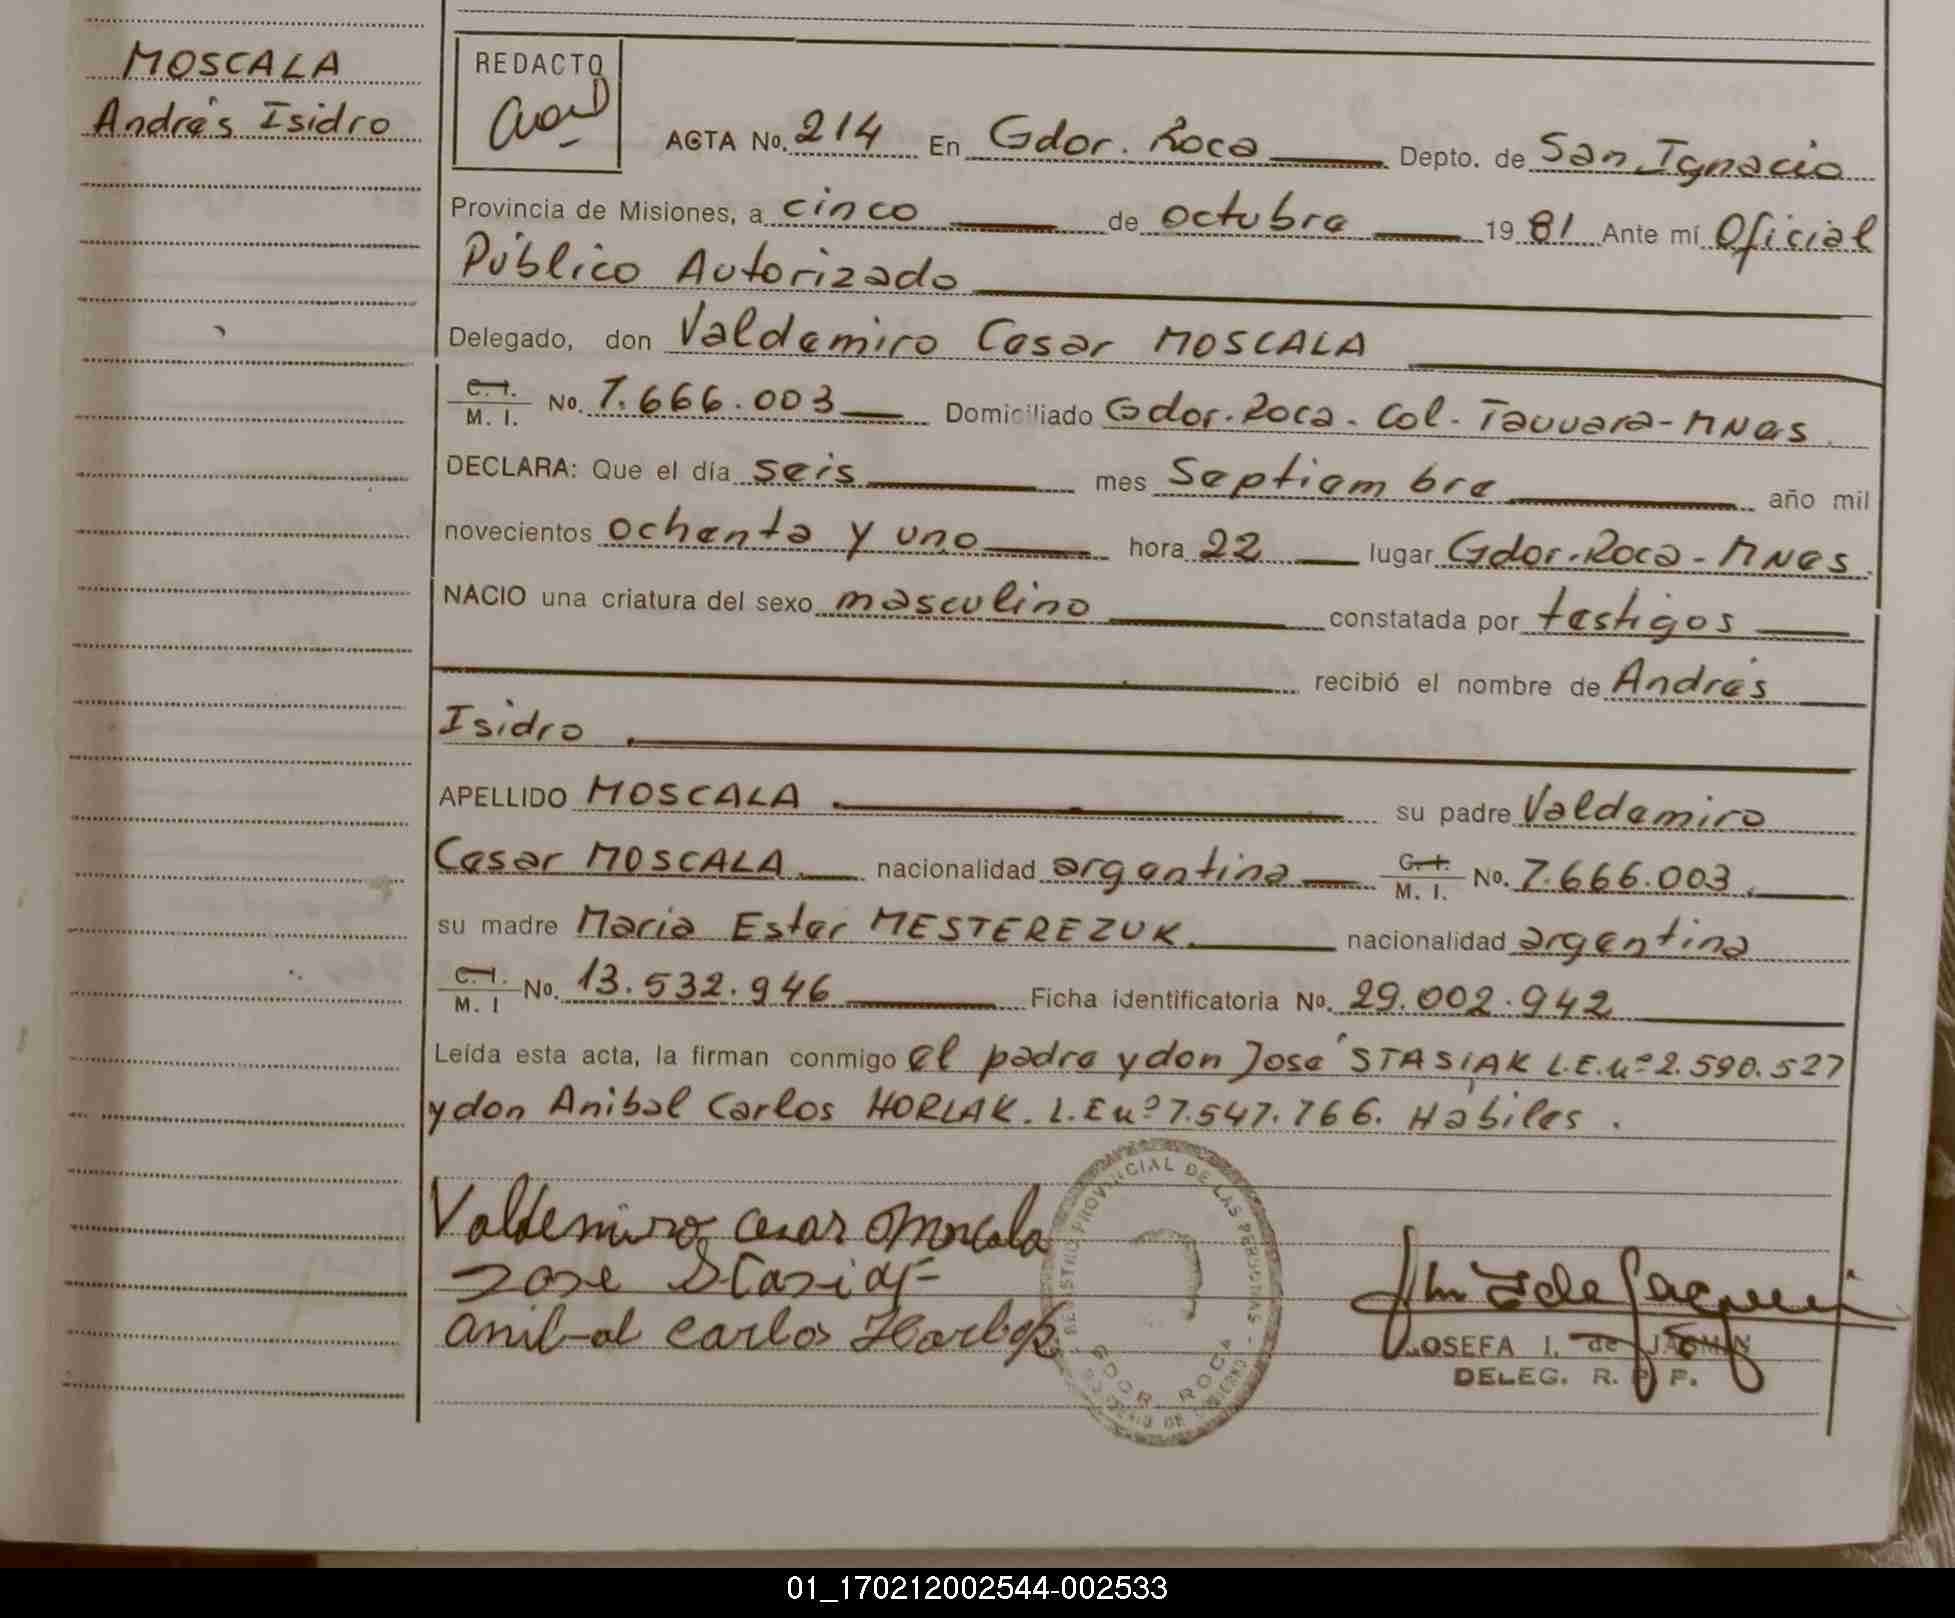 MOSCALA
Andrés Isidro
REDACTO
ACTA No. 214 En Gdor. Roca Depto. de San Ignacio
Provincia de Misiones, a cinco de octubre 1981 Ante mí Oficial
Público Autorizado
Delegado, don Valdemiro Cesar MOSCALA
C.I. M. I. No. 7.666.003 Domiciliado Gdor. Roca. Col. Tavvara-MNes
DECLARA: Que el día seis mes Septiembre año mil
novecientos ochenta y uno hora 22 lugar Gdor. Roca - MNes.
NACIO una criatura del sexo masculino constatada por testigos
recibió el nombre de Andrés
Isidro
APELLIDO MOSCALA su padre Valdemiro
Cesar MOSCALA nacionalidad argentina C.I. M. I. No. 7.666.003
su madre Maria Ester MESTEREZUK nacionalidad argentina
C.I. M. I No. 13.532.946 Ficha identificatoria No. 29.002.942
Leída esta acta, la firman conmigo el padre y don José STASIAK L.E.nº 2.590.527
y don Anibal Carlos HORLAK. L.E nº 7.547.766. Hábiles.
Valdemiro Cesar Moscala
Jose Stasiak
Anibal Carlos Horlak
REGISTRO PROVINCIAL DE LAS PERSONAS
GDOR. ROCA
JOSEFA I. de
DELEG. R. P. P.
01_170212002544-002533